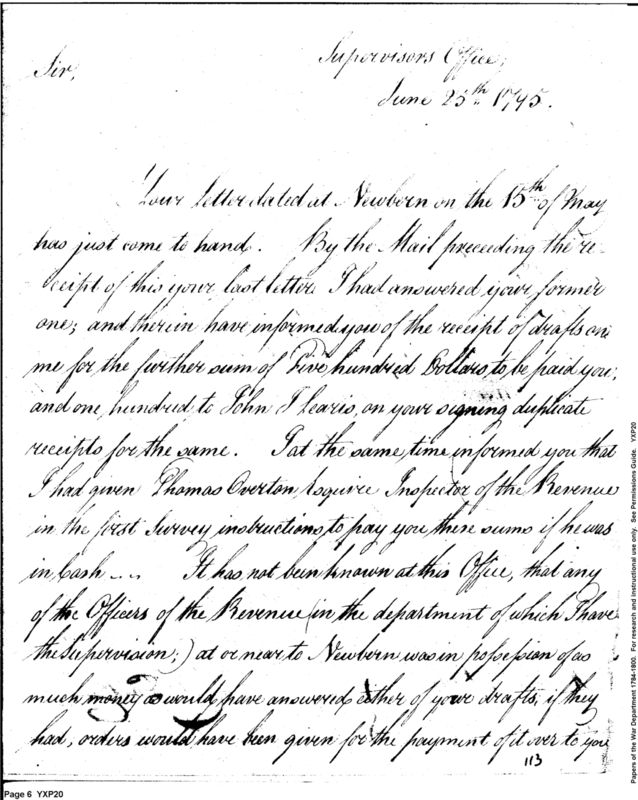 Supervisors Office,
Sir,
June 25th 1795.
Your letter dated at Newbern on the 15th of May
has just come to hand. By the Mail preceeding the re-
ceipt of this your last letter I had answered your former
one; and therein have informed you of the receipt of drafts on
me for the further sum of Five hundred Dollars to be paid you;
and one hundred to John on your signing duplicate
receipts for the same. I at the same time informed you that
I had given Thomas Overton Esquire Inspector of the Revenue
in the first Survey instructions to pay you these sums if he was
in Cash .... It has not been known at this Office, that any
of the Officers of the Revenue (in the department of which I have
the Supervision;) at or near to Newbern was in possession of as
much money as would have answered either of your drafts; if they
had, orders would have been given for the payment of it over to you
113
Page 6 YXP20
Papers of the War Department 1784-1800. For research and instructional use only. See Permissions Guide. YXP20